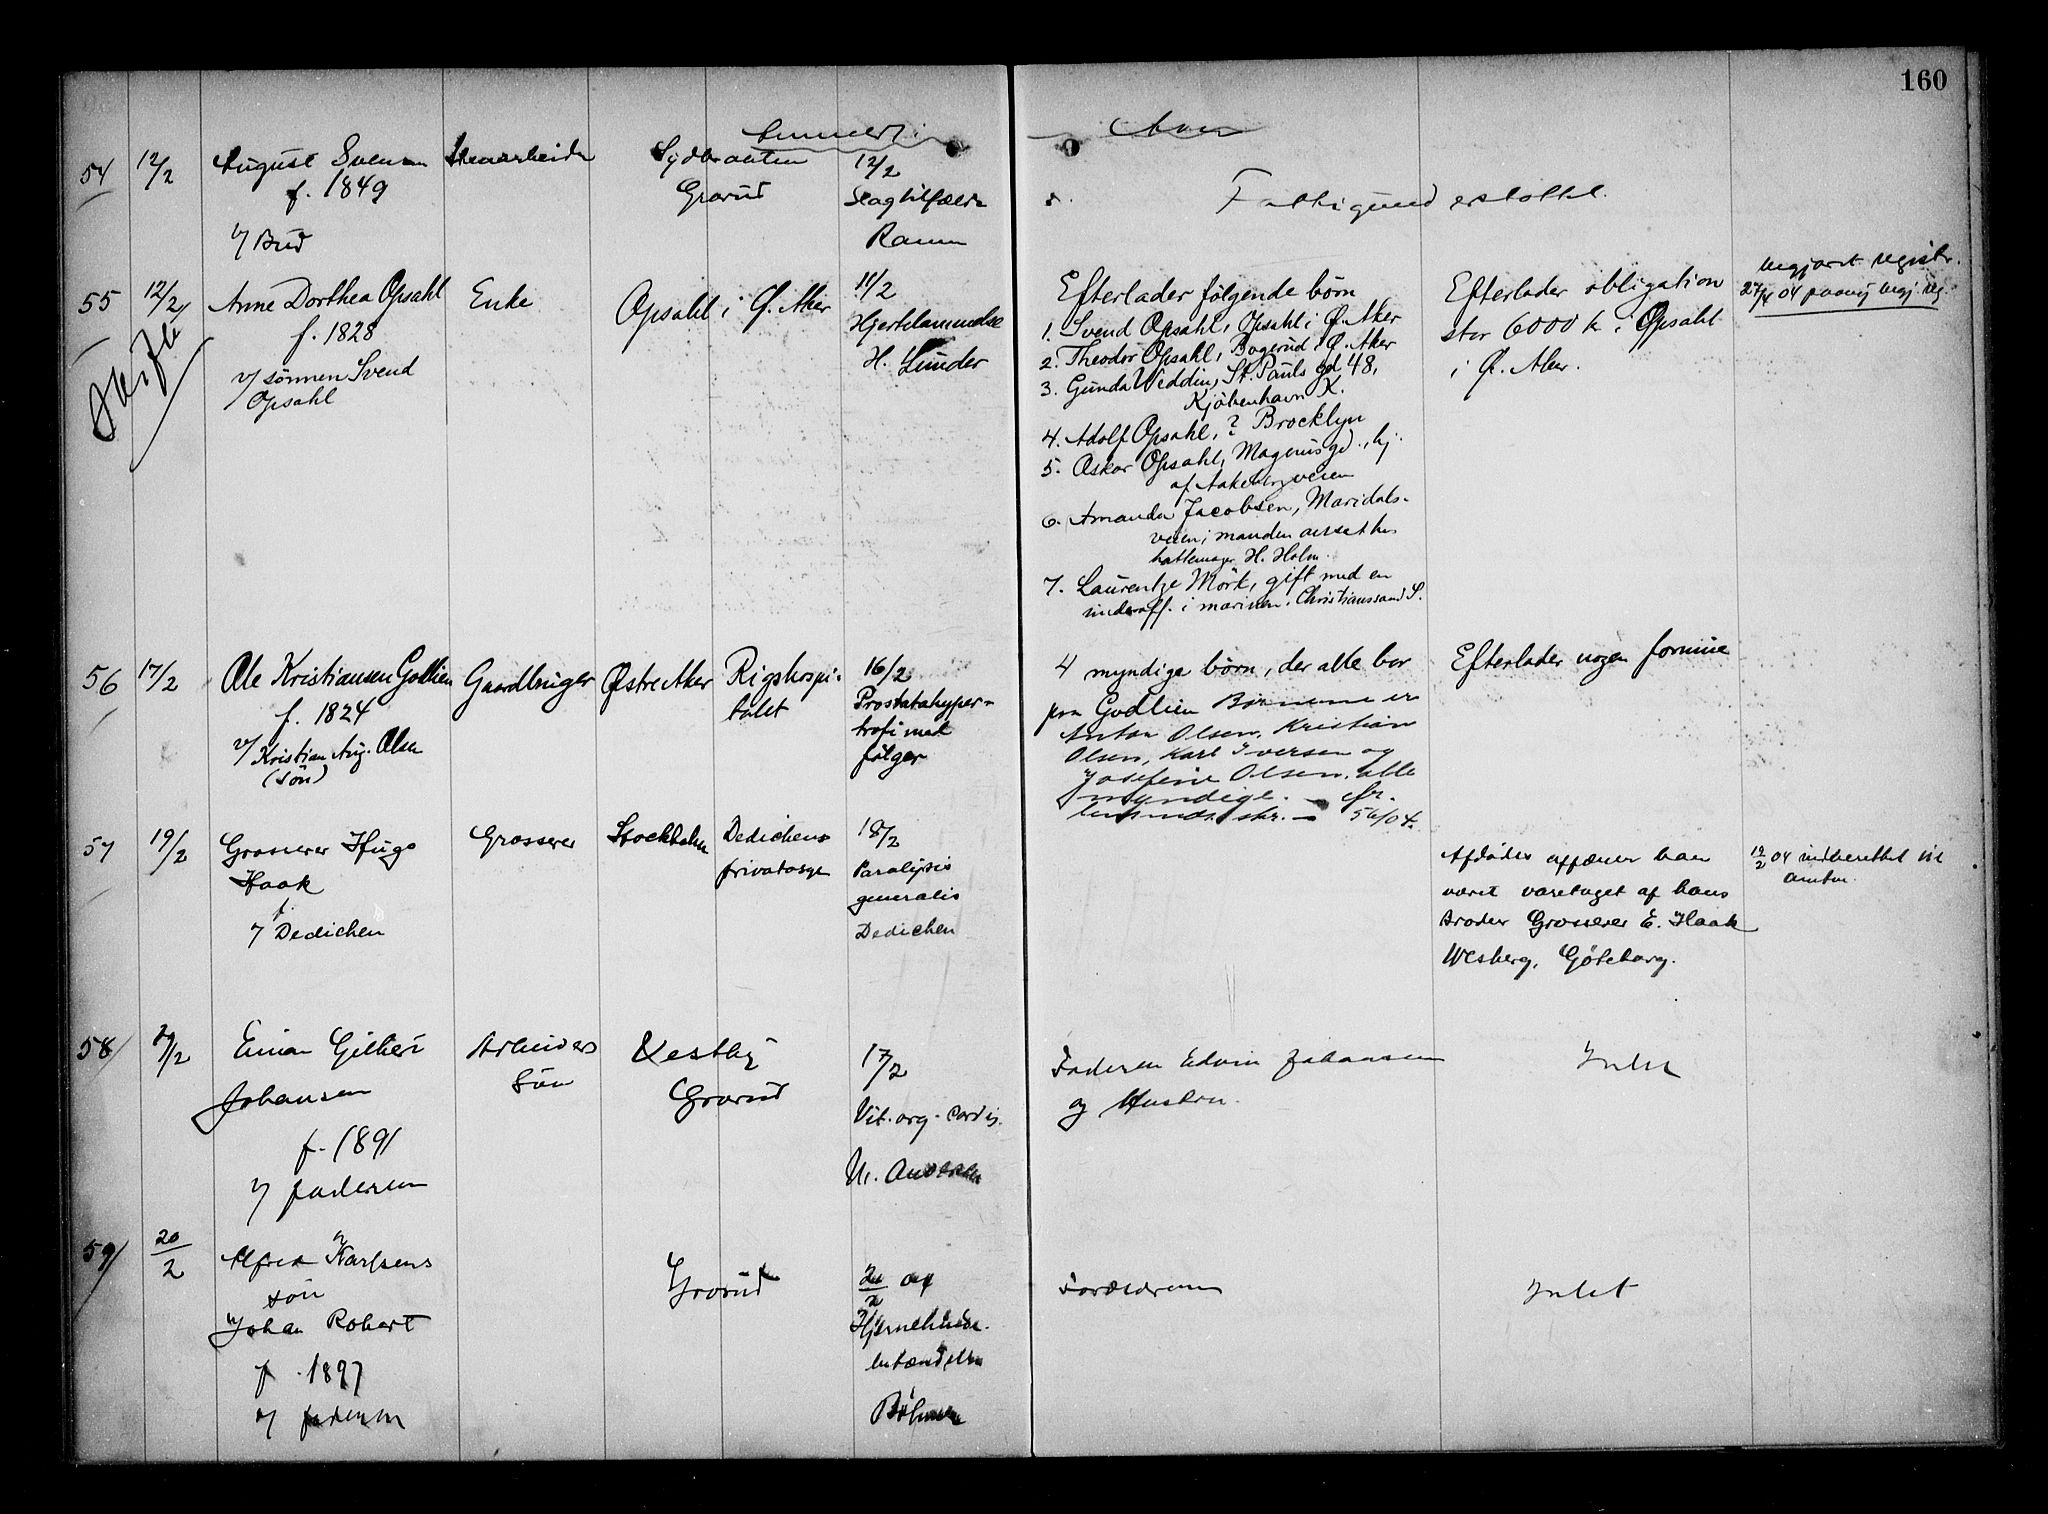 160
54 12/2 August Svensen Stenarbeider Sydbraaten 12/2
f. 1849 Grorud Slagtilfælde Fattigunderstøttet.
v/ Bud Ramm
55 12/2 Anne Dorthea Opsahl Enke Opsahl i Ø. Aker 11/2
f. 1828 Hjertelammelse
v/ sønnen Svend H. Lunder
Opsahl
Efterlader følgende børn
1. Svend Opsahl, Opsahl i Ø. Aker
2. Theodor Opsahl, Bogerud i Ø. Aker
3. Gunda Weddin, St. Pauls gd 48,
Kjøbenhavn K.
4. Adolf Opsahl, ? Brocklyn
5. Oskar Opsahl, Magnusgd., hj.
af Aakebergveien
6. Amanda Jacobsen, Maridals-
veien; manden ansat hos
hattemager H. Holm.
7. Laurentze Mörk, gift med en
underoff. i marinen. Christianssand S.
Efterlader obligation
stor 6000 kr i Opsahl
i Ø. Aker.
begjæret registr.
27/4 04 paany begj. reg.
56 17/2 Ole Kristiansen Godlien Gaardbruger Østre Aker Rigshospi- 16/2
f. 1824 talet Prostatahyper-
v/ Kristian Aug. Olsen trofi med
(søn) følger
4 myndige børn, der alle bor
paa Godlien Børnene er
Anton Olsen, Kristian
Olsen, Karl Iversen og
Josefine Olsen, alle
myndige. —
skr. — 56/04.
Efterlader nogen formue
57 19/2 Grosserer Hugo Grosserer Stockholm Dedichens 18/2
Haak privatasyl Paralysis
f. generalis
v/ Dedichen Dedichen
Afdødes affærer har
været varetaget af hans
broder Grosserer E. Haak
Wesberg, Göteborg.
19/2 04 indberettet til
amtm.
58 /2 Einar Gilbert Arbeiders Vestby 17/2
Johansen Søn Grorud Vit. org. cordis.
f. 1891 Andersen
v/ faderen
Faderen Edvin Johansen
og Hustru. Intet
59 20/2 Alfred Karlsens Grorud 20/2 af
søn Hjernehinde-
Johan Robert betændelse
f. 1897 Böhmer
v/ faderen
Forældrene Intet